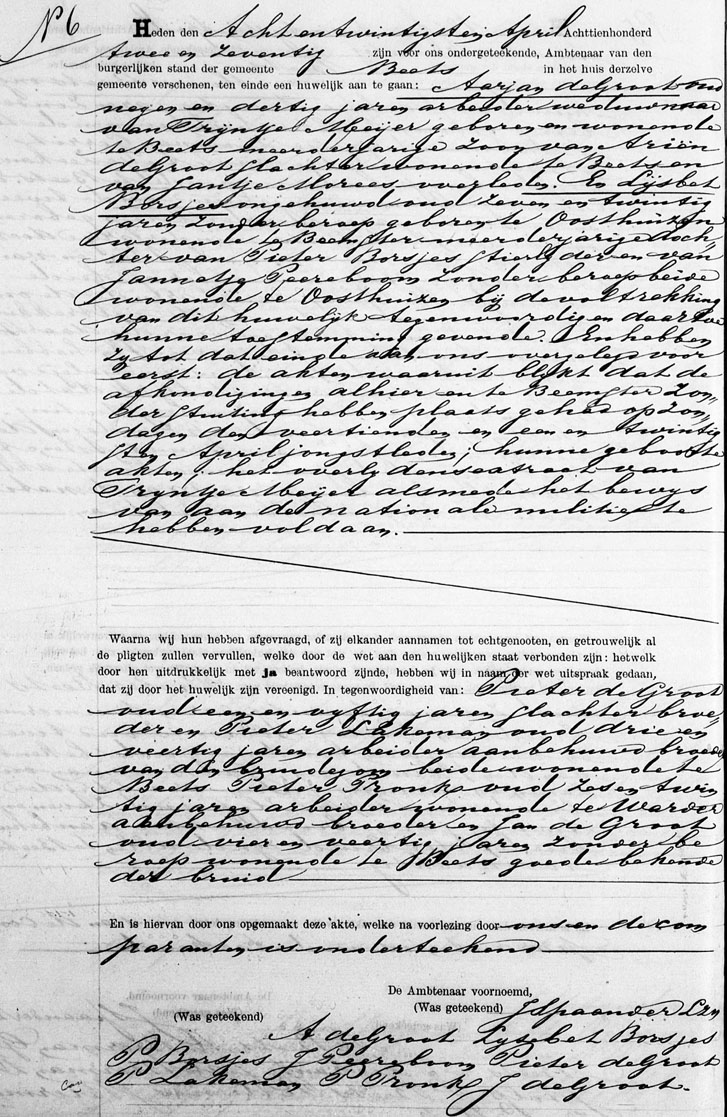 N° 6
Heden den Acht en twintigsten April Achttienhonderd
twee en zeventig zijn voor ons ondergeteekende, Ambtenaar van den
burgerlijken stand der gemeente Beets in het huis derzelve
gemeente verschenen, ten einde een huwelijk aan te gaan: Aarjan de Groot oud
negen en dertig jaren arbeider weduwnaar
van Tryntje Meijer geboren en wonende
te Beets meerderjarige zoon van Ariën
de Groot slachter wonende te Beets en
van Jantje Morees overleden. En Lijsbet
Borsjes ongehuwd oud zeven en twintig
jaren zonder beroep geboren te Oosthuizen
wonende te Beemster meerderjarige doch
ter van Pieter Borsjes en van
Jannetje Peereboom zonder beroep beide
wonende te Oosthuizen bij de voltrekking
van dit huwelijk tegenwoordig en daartoe
hunne toestemming gevende. En hebben
zy tot dat einde aan ons overgelegd voor
eerst: de akten waaruit blijkt dat de
afkondigingen alhier en te Beemster zon
der stuiting hebben plaats gehad op Zon
dagen den veertienden en een en twintig
sten April jongstleden; hunne geboorte
akten; het overlydensextract van
Tryntje Meijer alsmede het bewys
van aan de nationale militie te
hebben voldaan.
Waarna wij hun hebben afgevraagd, of zij elkander aannamen tot echtgenooten, en getrouwelijk al
de pligten zullen vervullen, welke door de wet aan den huwelijken staat verbonden zijn: hetwelk
door hen uitdrukkelijk met Ja beantwoord zijnde, hebben wij in naam der wet uitspraak gedaan,
dat zij door het huwelijk zijn vereenigd. In tegenwoordigheid van: Pieter de Groot
oud een en vyftig jaren slachter broe
der en Pieter Lakeman oud drie en
veertig jaren arbeider aanbehuwd broeder
van den bruidegom beide wonende te
Beets Pieter Pronk oud zes en twin
tig jaren arbeider wonende te Warder
aanbehuwd broeder en Jan de Groot
oud vier en veertig jaren zonder be
roep wonende te Beets goede bekende
der bruid
En is hiervan door ons opgemaakt deze akte, welke na voorlezing door ons en de com
paranten is onderteekend
De Ambtenaar voornoemd,
(Was geteekend) J Spaander Czn
(Was geteekend)
A de Groot Lysebet Borsjes
P Borsjes J Peereboom Pieter de Groot
P Lakeman P Pronk J de Groot.